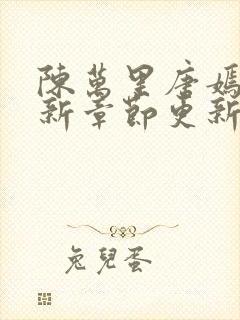 陳萬里唐嫣
新章節更新
兔兒蛋